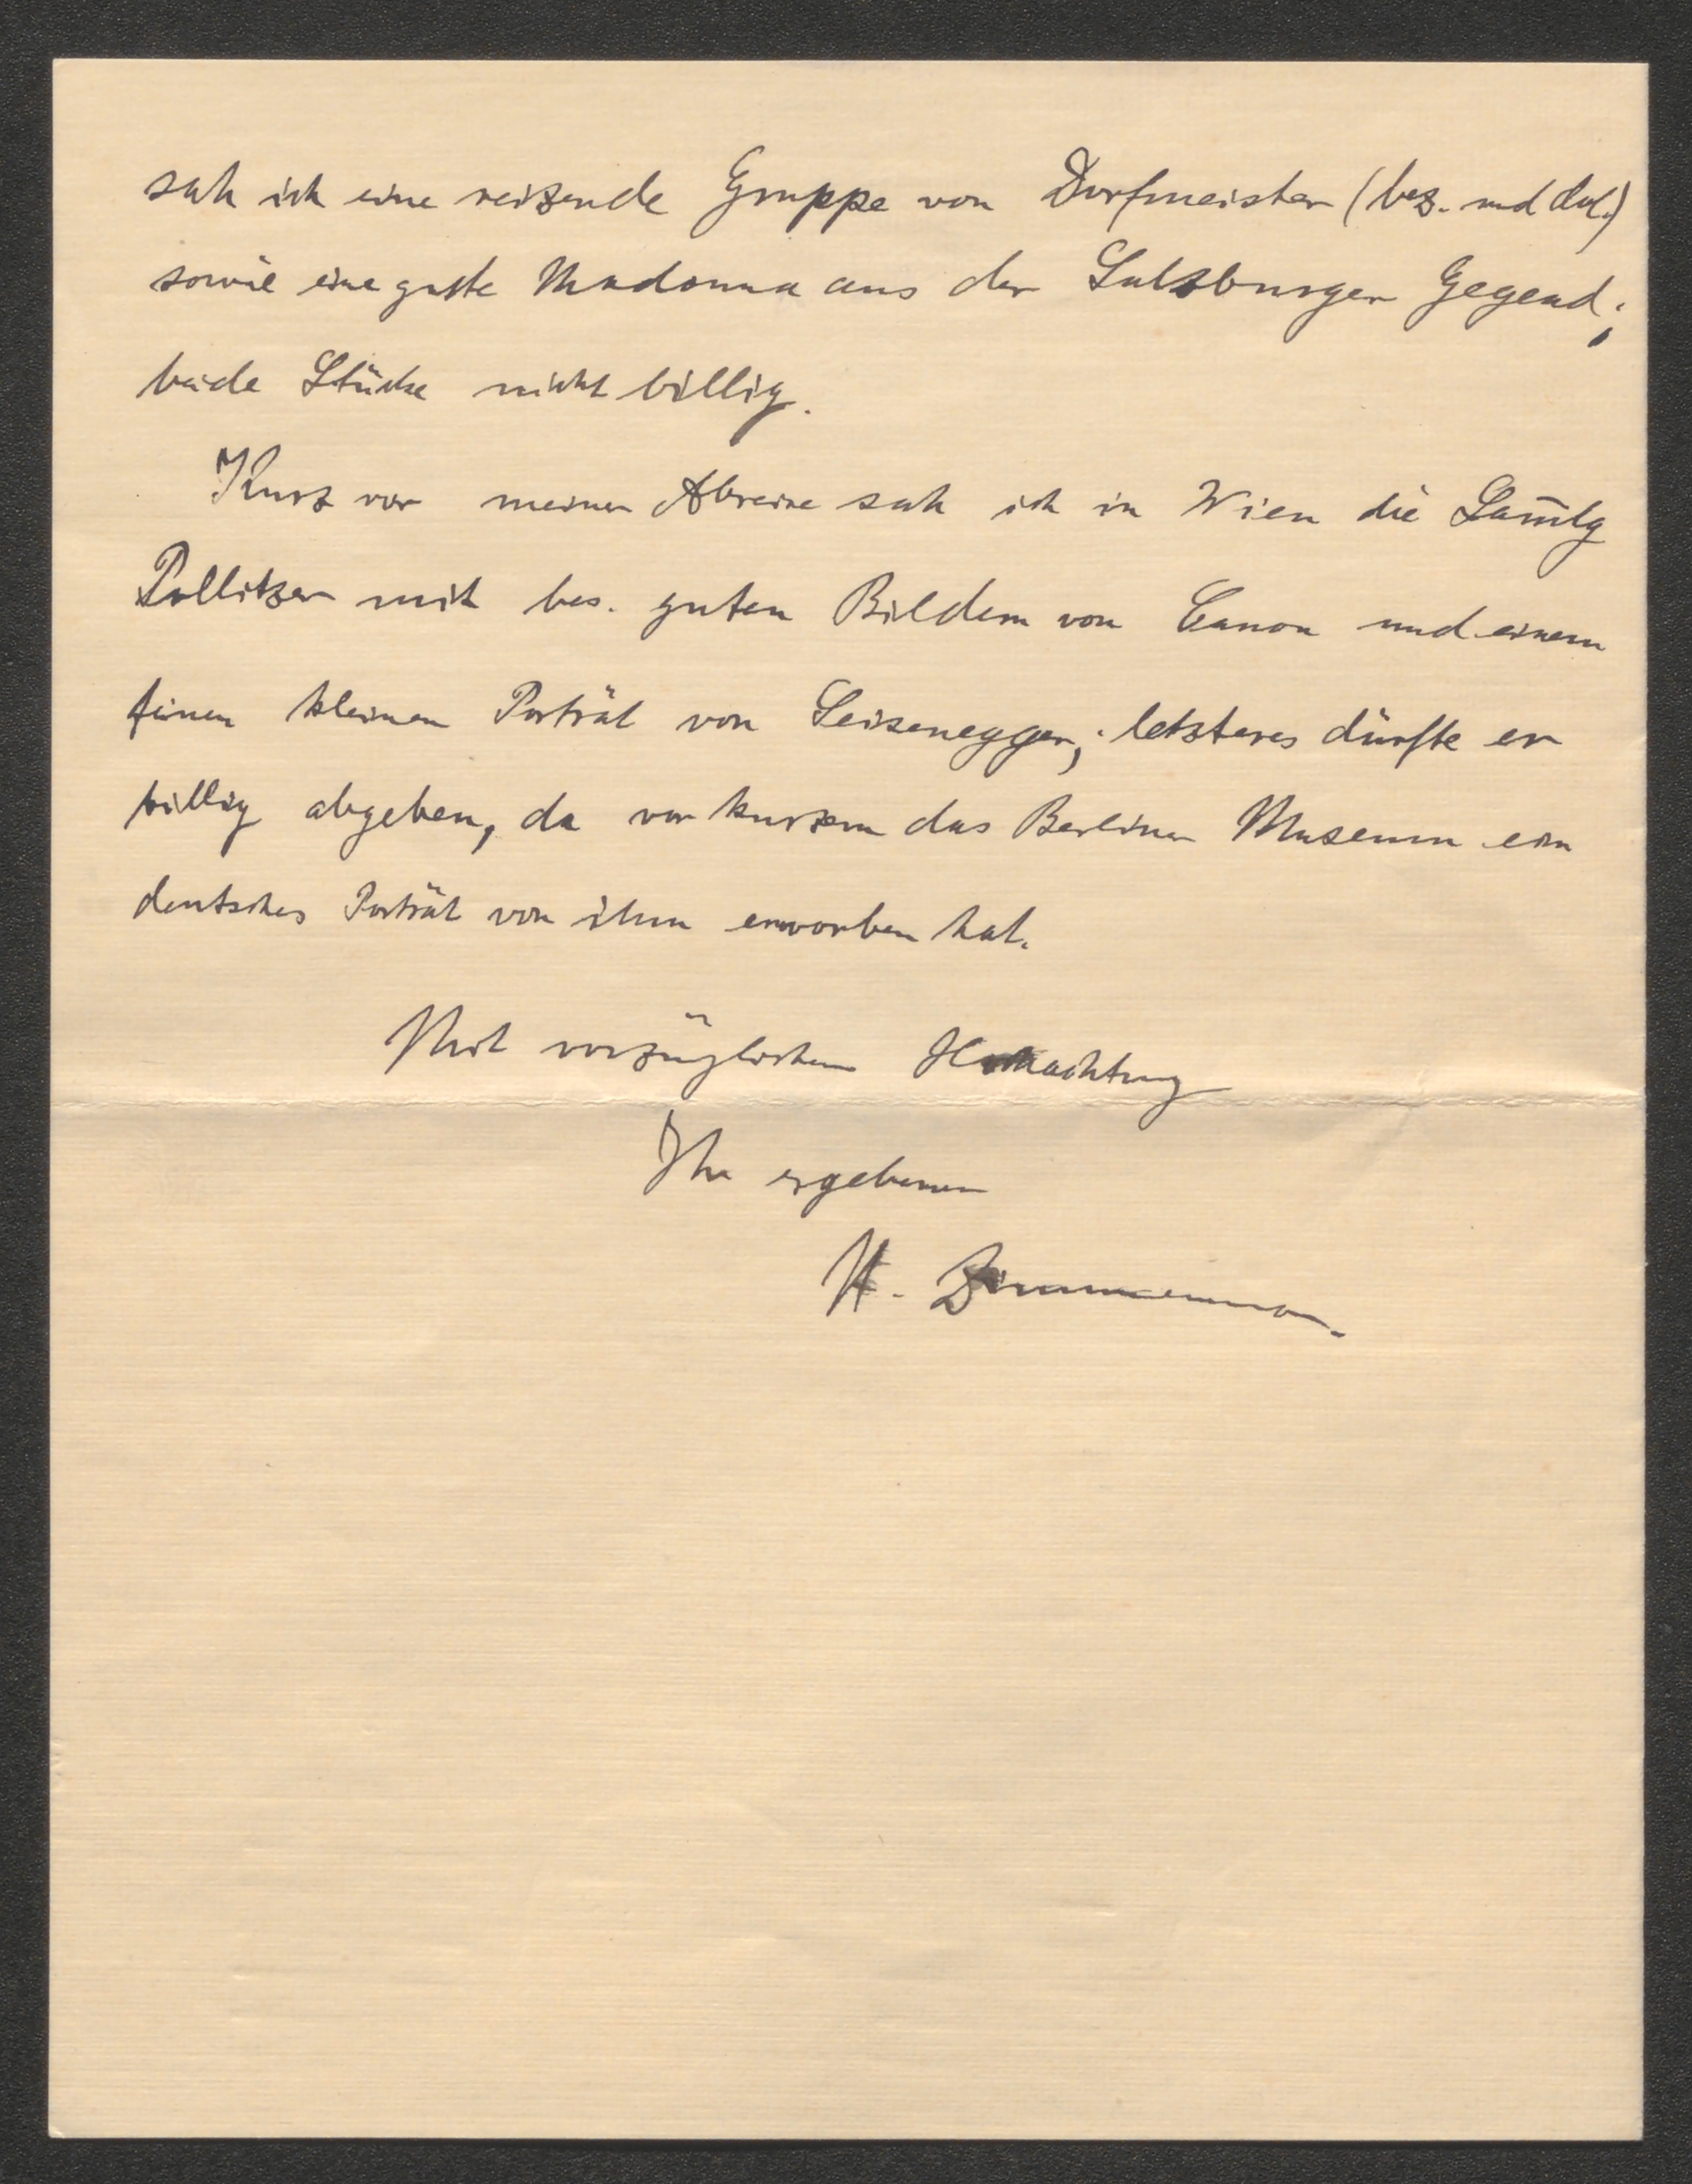 sah ich eine reizende Gruppe von Dorfmeister (bez. und dat.)
sowie eine gute Madonna aus der Salzburger Gegend;
beide Stücke nicht billig.
Kurz vor meiner Abreise sah ich in Wien die Sam̅lg
Pollitzer mit bes. guten Bildern von Canon und einem
feinen kleinen Porträt von Seisenegger; letzteres dürfte er
billig abgeben, da vor kurzem das Berliner Museum ein
deutsches Porträt von ihm erworben hat.
Mit vorzüglicher Hochachtung
Ihr ergebener
H. Zimmermann.